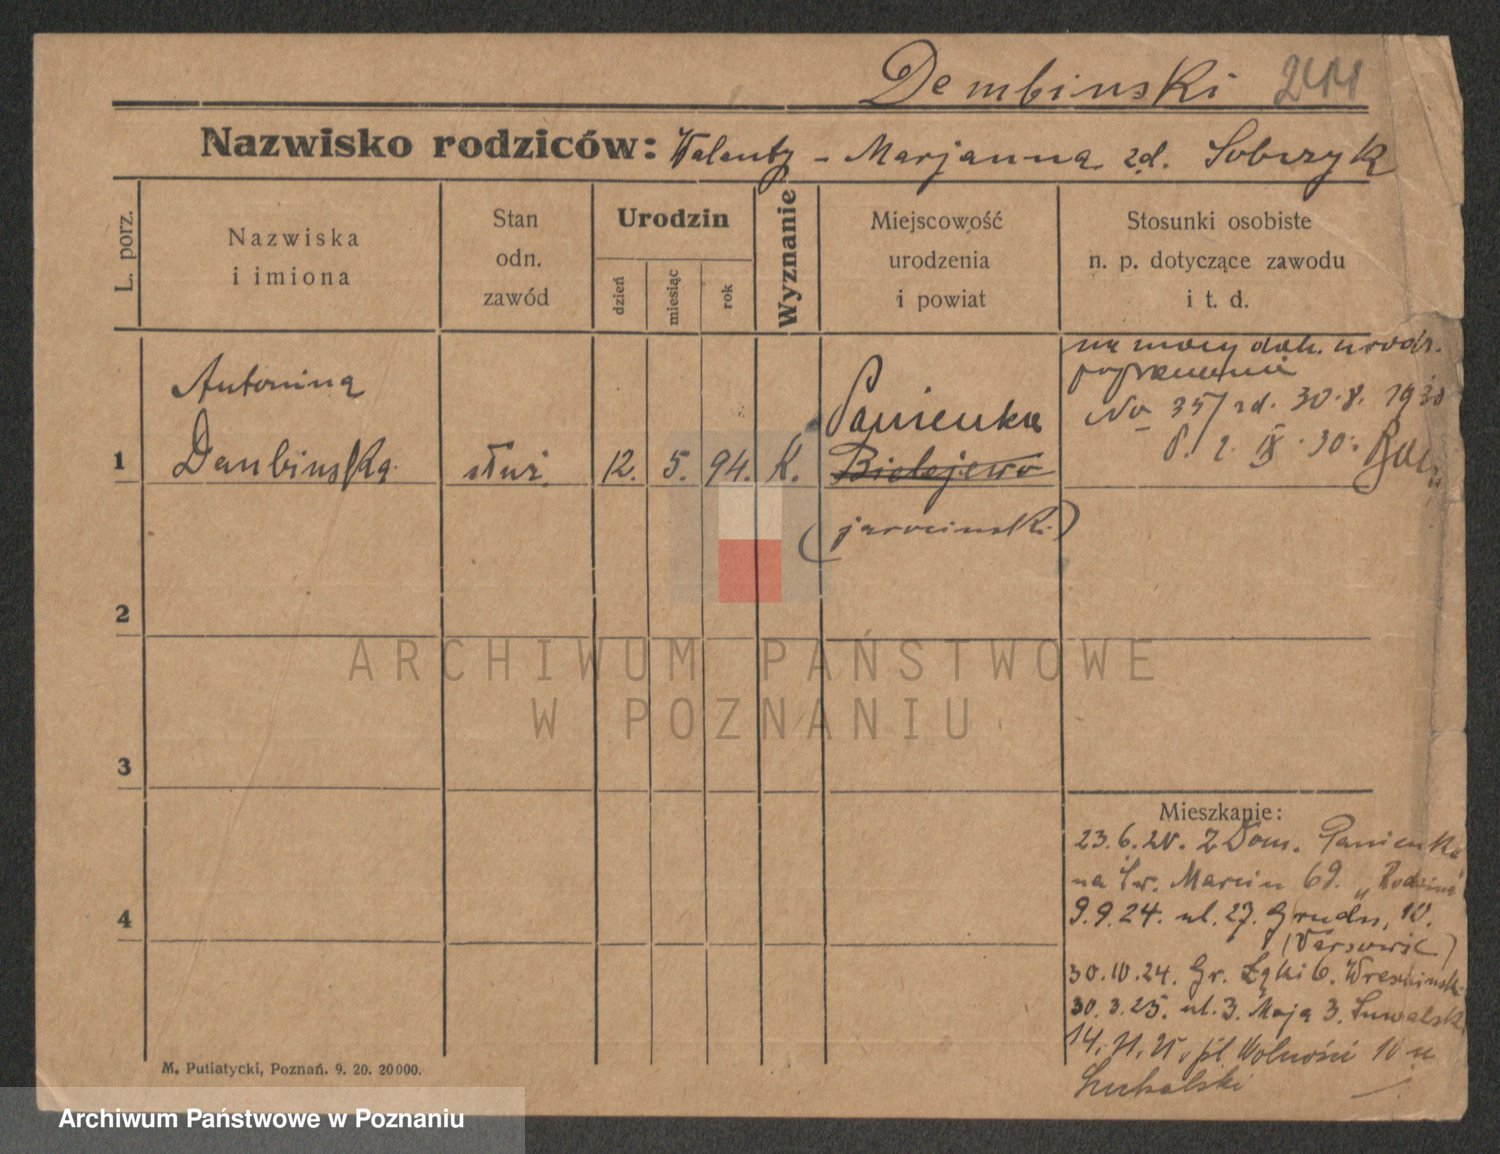 Dembinski 2411
Nazwisko rodziców: Walenty - Marjanna zd. Sobczyk
L. porz.
Nazwiska
i imiona
Stan
odn.
zawód
Urodzin
dzień
miesiąc
rok
Wyznanie
Miejscowość
urodzenia
i powiat
Stosunki osobiste
n. p. dotyczące zawodu
i t. d.
1
Antonina
Dembinska
służ.
12. 5. 94. K.
Panienka
Bielejewo
(jarocinski)
na mocy dok. urodz.
poprawiono
No 35/ zd. 30.8. 1930
P. 2. IX. 30.
2
3
4
Mieszkanie:
23.6.20. Z Dom. Panienka
na Św. Marcin 69. „Rodzina"
9.9.24. ul. 27. Grudn. 10.
30.10.24. Gr. Łąki 6.
30.3.25. ul. 3. Maja 3. Suwalski
14.11.25. pl. Wolności 10 u
M. Putiatycki, Poznań. 9. 20. 20000.
ARCHIWUM PAŃSTWOWE
W POZNANIU
Archiwum Państwowe w Poznaniu